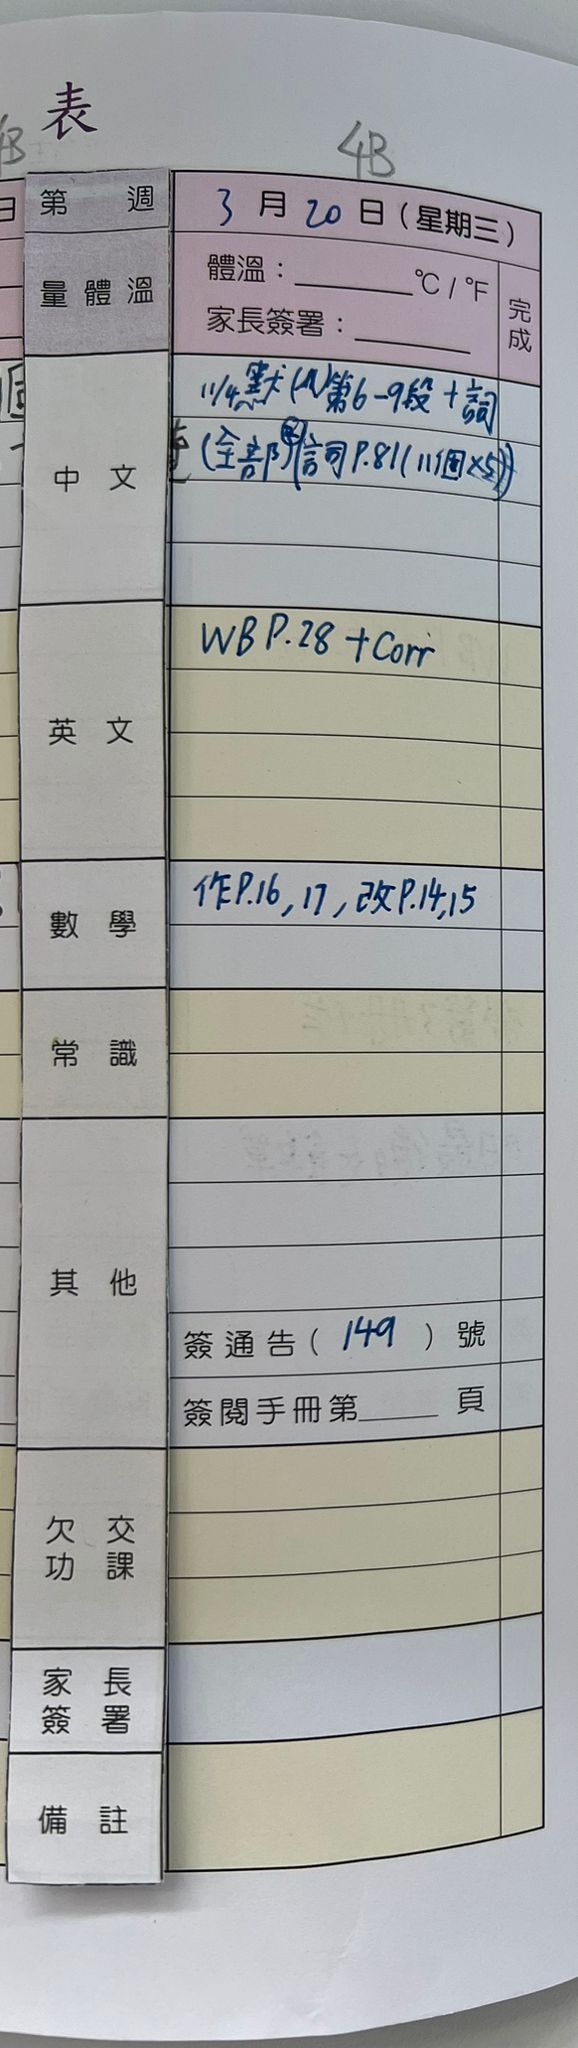 表
4B
第 週
3 月 20 日 (星期三)
量體溫
體溫:______°C / °F
家長簽署:______
完成
中 文
11/4默(八)第6-9段+詞
(全部) 詞P.81(11個×5)
英 文
WB P.28 + Corr
數 學
作P.16, 17, 改P.14,15
常 識
其 他
簽通告( 149 ) 號
簽閱手冊第______ 頁
欠 交
功 課
家 長
簽 署
備 註